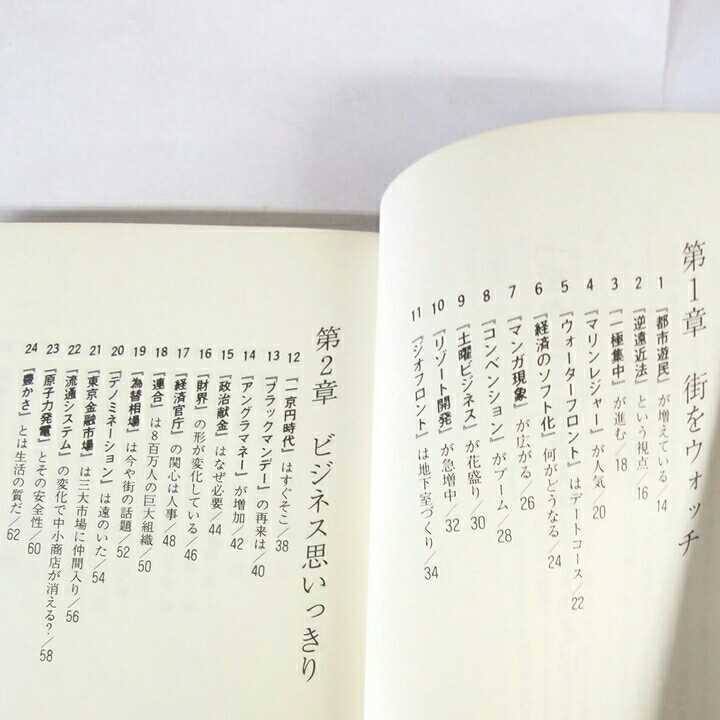 第1章 街をウォッチ
1 『都市遊民』が増えている/14
2 『逆遠近法』という視点/16
3 『一極集中』が進む/18
4 『マリンレジャー』が人気/20
5 『ウォーターフロント』はデートコース/22
6 『経済のソフト化』何がどうなる/24
7 『マンガ現象』が広がる/26
8 『コンベンション』がブーム/28
9 『土曜ビジネス』が花盛り/30
10 『リゾート開発』が急増中/32
11 『ジオフロント』は地下室づくり/34
第2章 ビジネス思いっきり
12 『一京円時代』はすぐそこ/38
13 『ブラックマンデー』の再来は/40
14 『アングラマネー』が増加/42
15 『政治献金』はなぜ必要/44
16 『財界』の形が変化している/46
17 『経済官庁』の関心は人事/48
18 『連合』は8百万人の巨大組織/50
19 『為替相場』は今や街の話題/52
20 『デノミネーション』は遠のいた/54
21 『東京金融市場』は三大市場に仲間入り/56
22 『流通システム』の変化で中小商店が消える?/58
23 『原子力発電』とその安全性/60
24 『豊かさ』とは生活の質だ/62